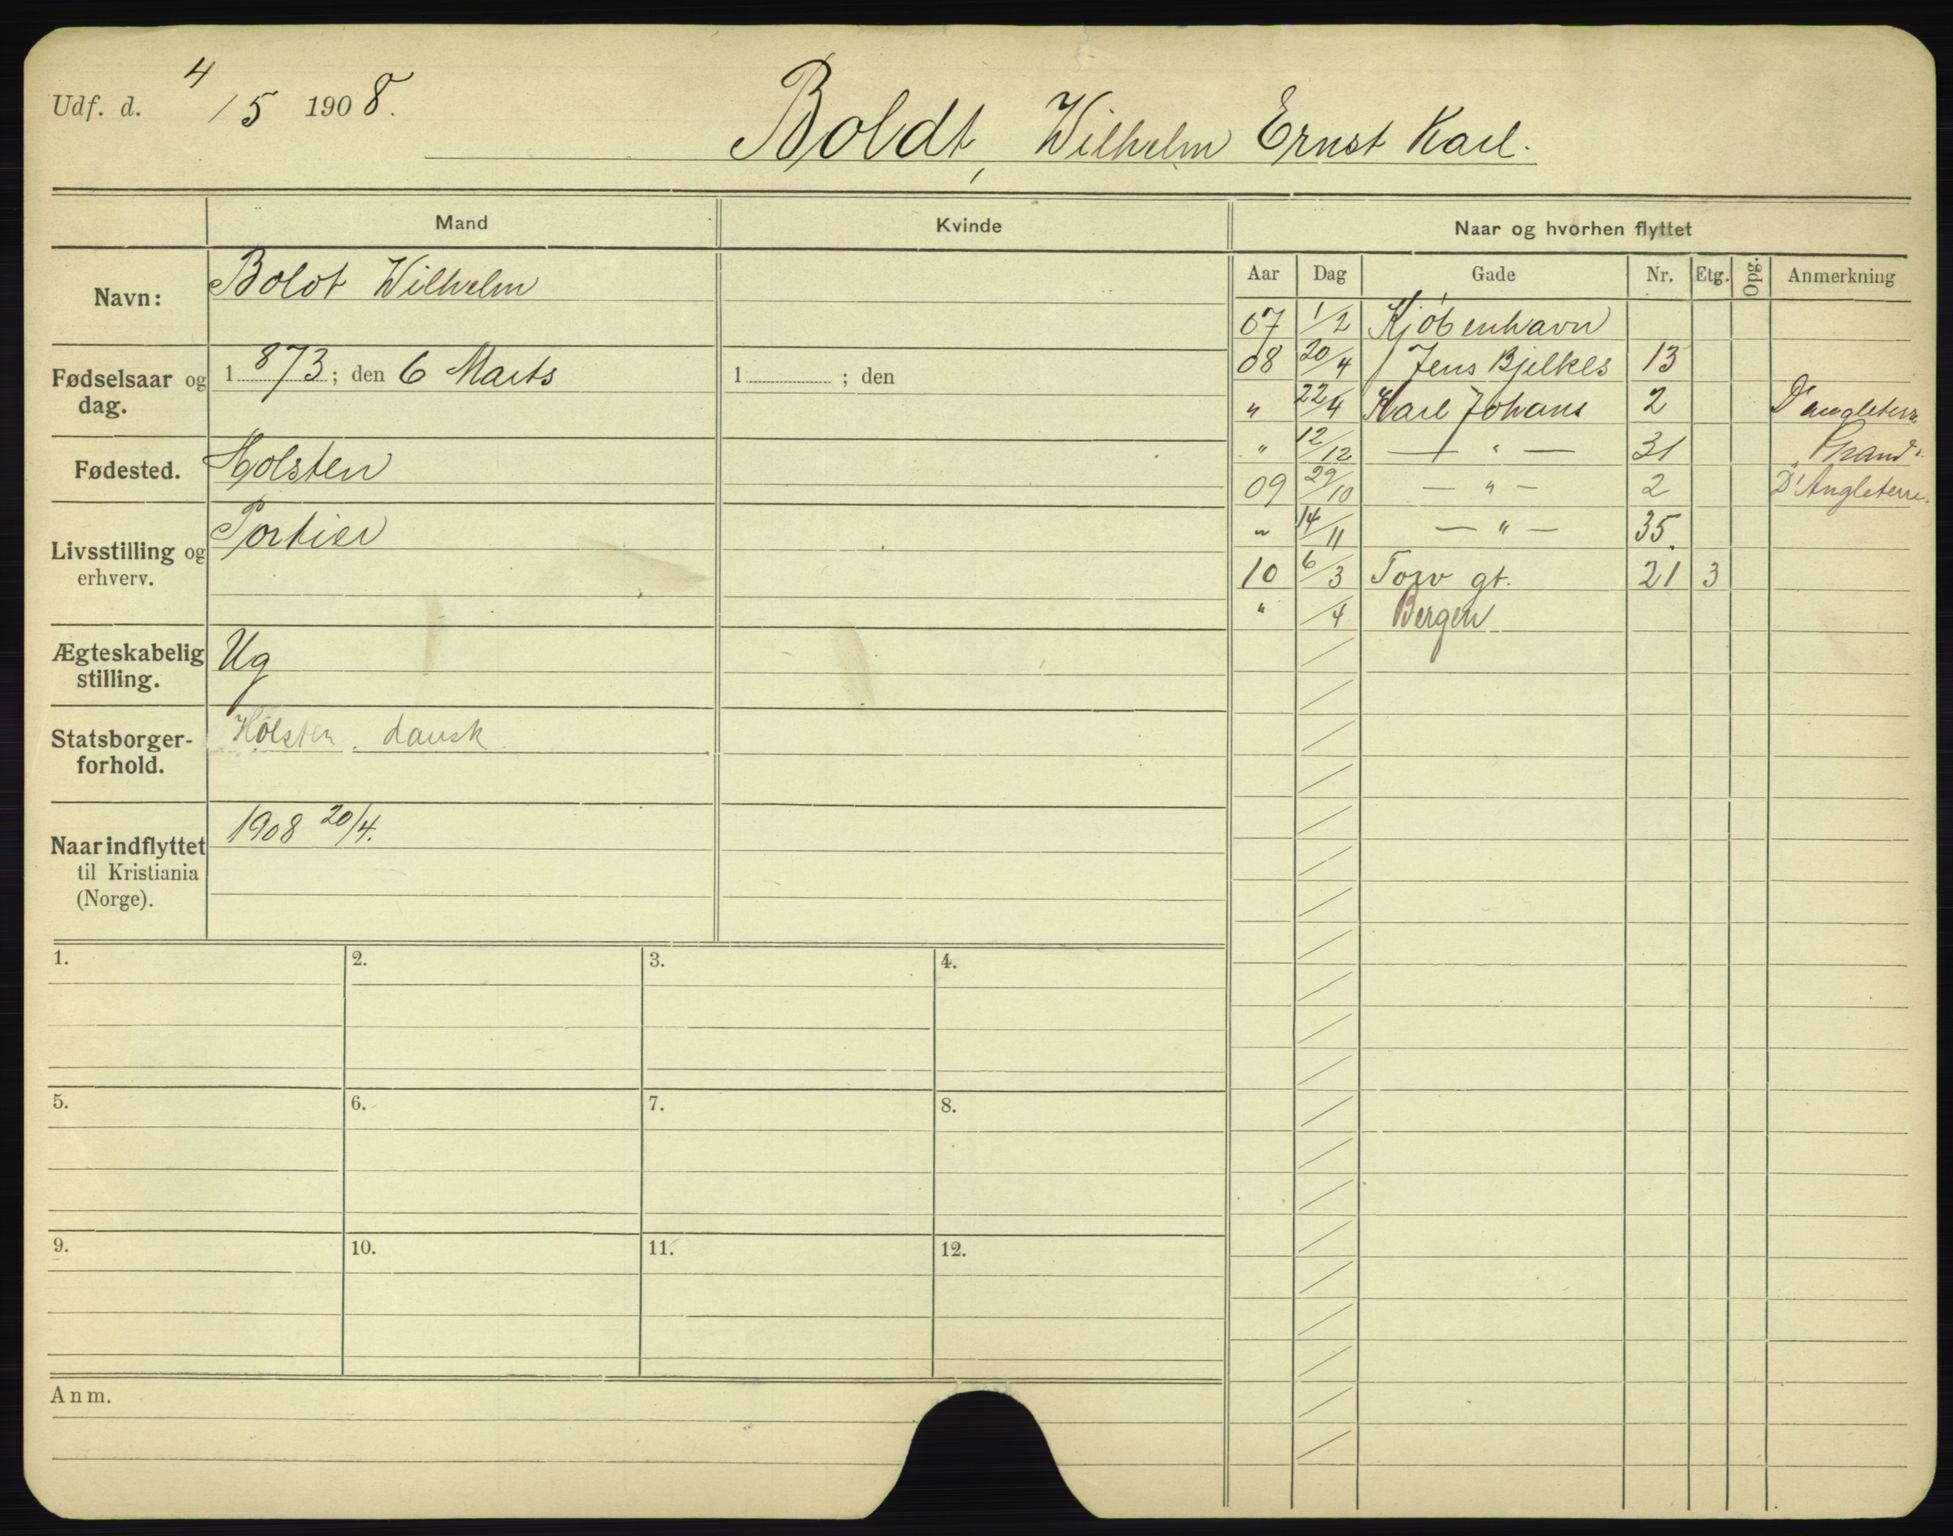 Udf. d. 4/5 1908.
Boldt, Wilhelm Ernst Karl.
Mand
Kvinde
Naar og hvorhen flyttet
Navn:
Boldt Wilhelm
Fødselsaar og dag.
1873; den 6 Marts
1 ; den
Fødested.
Holsten
Livsstilling og erhverv.
Portier
Ægteskabelig stilling.
Ug
Statsborgerforhold.
Holsten. dansk
Naar indflyttet til Kristiania (Norge).
1908 20/4.
Aar Dag Gade Nr. Etg. Opg. Anmerkning
07 1/2 Kjøbenhavn
08 20/4 Jens Bjelkes 13
" 22/4 Karl Johans 2 D'angleterre
" 12/12 — " — 31 "Grand".
09 29/10 — " — 2 D'Angleterre.
" 14/11 — " — 35.
10 6/3 Torv gt. 21 3
" /4 Bergen
1.
2.
3.
4.
5.
6.
7.
8.
9.
10.
11.
12.
Anm.